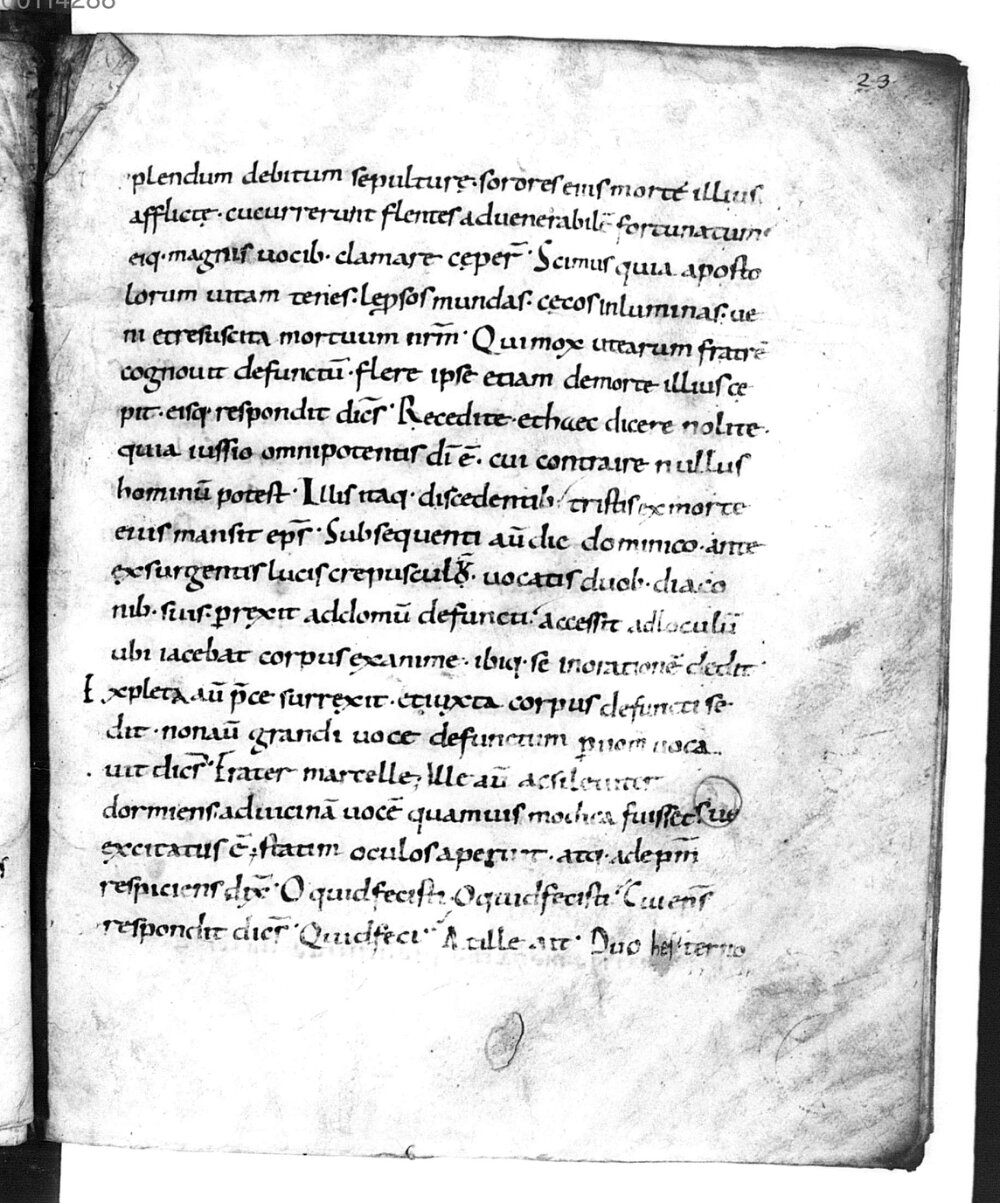 00114288
23
plendum debitum sepulturę· sorores eius morte illius
afflictę· cucurrerunt flentes aduenerabilē fortunatum·
eiq· magnis uocib· clamare cęper̄· Scimus quia aposto
lorum uitam tenes· lęprosos mundas· cęcos inluminas· ue
ni et resuscita mortuum nr̄m· Qui mox ut earum fratrē
cognouit defunctū· flere ipse etiam demorte illius cę
pit· eisq· respondit dicēs· Recedite· et haec dicere nolite·
quia iussio omnipotentis dī ē· cui contraire nullus
hominū potest· Illis itaq· discedentib· tristis ex morte
eius mansit ep̄s· Subsequenti aū die dominico· ante
exsurgentis lucis crepusculū· uocatis duob· diaco
nib· suis· perrexit ad domū defuncti· accessit ad loculū
ubi iacebat corpus exanime· ibiq· se in orationē dedit·
Expleta aū p̄ce surrexit· et iuxta corpus defuncti se
dit· non aū grandi uoce defunctum p nom̄ uoca
uit dicēs· Frater marcelle; Ille aū ac si leuiter
dormiens· ad uicinā uocē quamuis modica fuisset sue
excitatus ē; statim oculos aperuit· atq· ad ep̄m
respiciens dix̄· O quid fecisti· O quid fecisti· Cui ep̄s
respondit dicēs· Quid feci· At ille ait· Duo hesterno